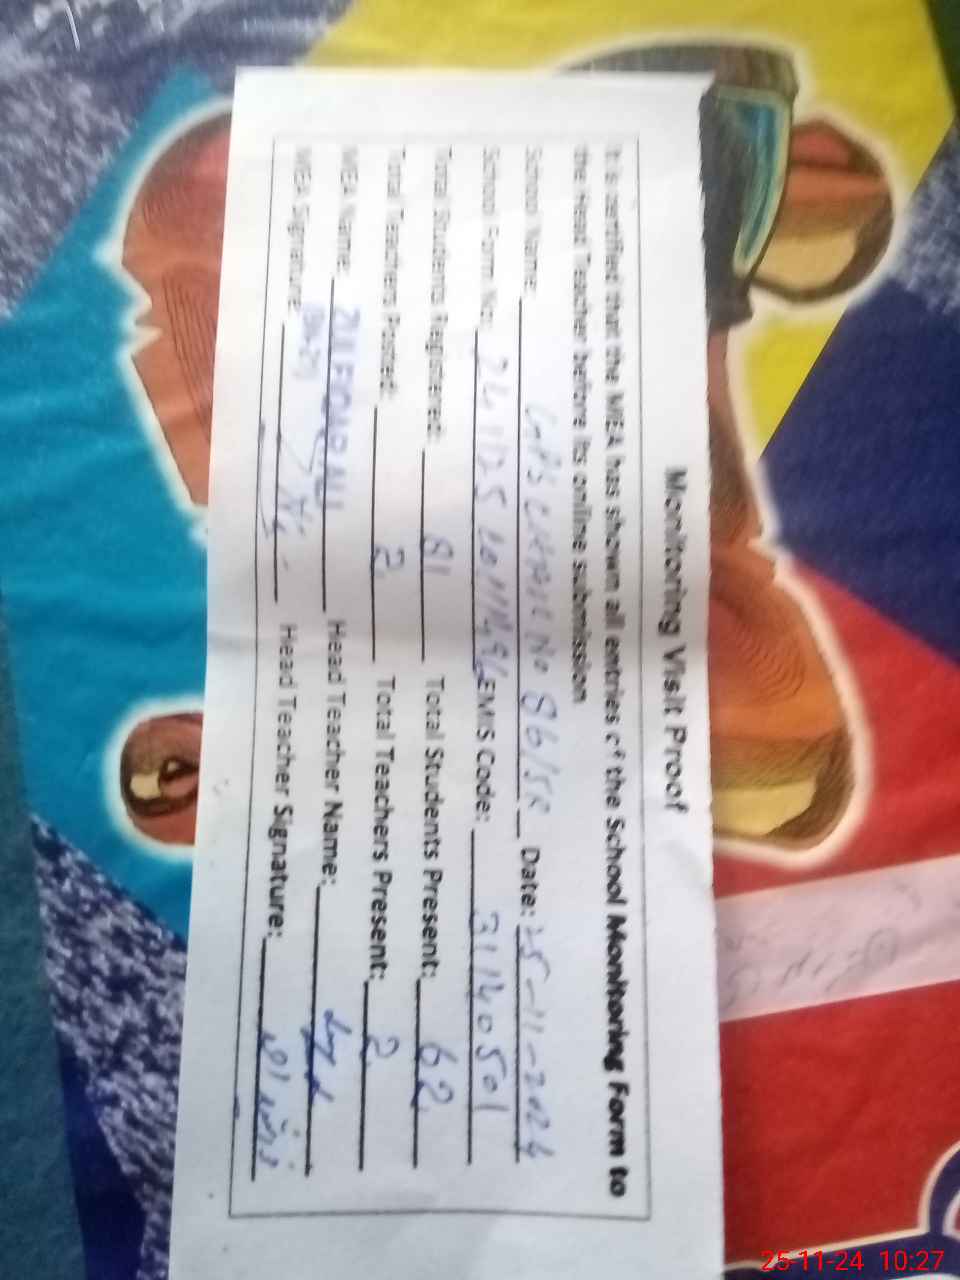 Monitoring Visit Proof
It is certified that the MEA has shown all entries of the School Monitoring Form to
the Head Teacher before its online submission
School Name: GPS No 86/5R Date: 25-11-2024
School Form No: EMIS Code: 31140501
Total Students Registered: 81 Total Students Present: 62
Total Teachers Posted: 2 Total Teachers Present: 2
MEA Name: ZULFIQAR ALI Head Teacher Name:
MEA Signature: Head Teacher Signature:
25-11-24 10:27